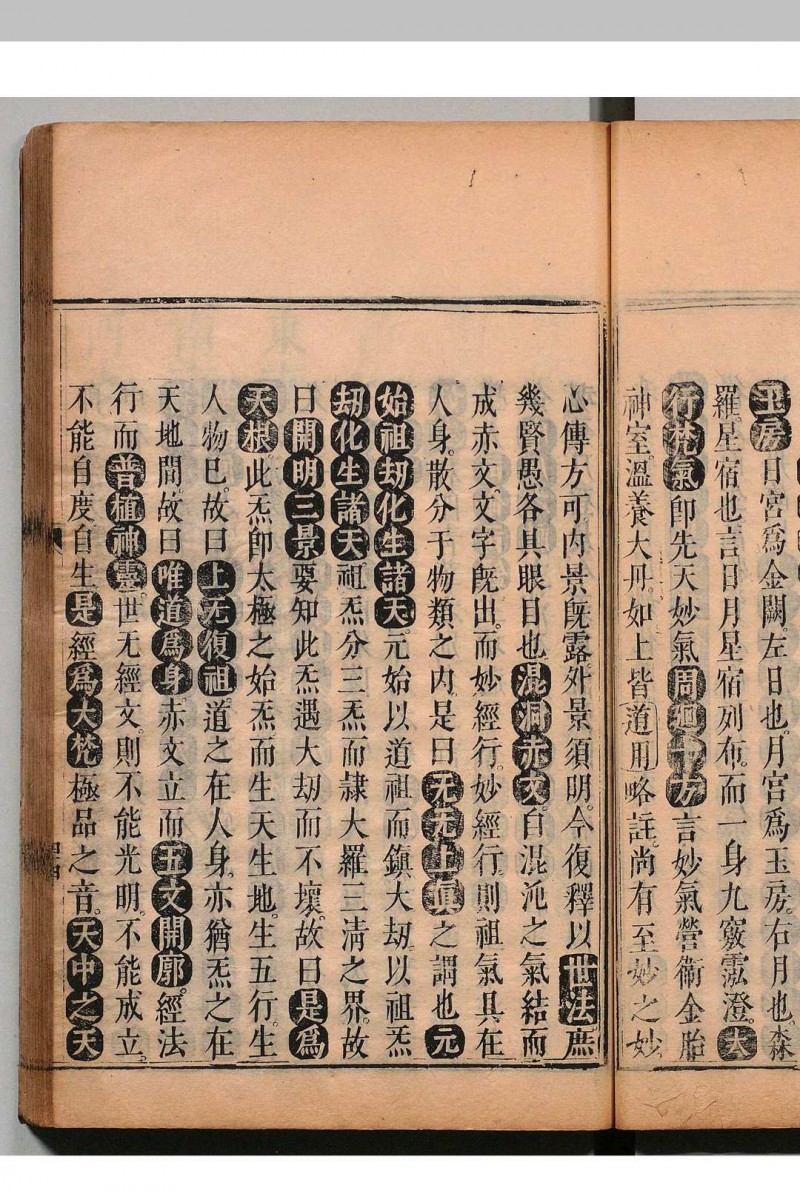 玉房日宮爲金闕左日也月宮爲玉房右月也森
羅星宿也言日月星宿列布而一身九竅澐澄大
行梵氣卽先天妙氣周迴十方言妙氣營衞金胎
神室溫養大丹如上皆道用略註尚有至妙之妙
心傳方可內景旣露外景須明今復釋以世法庶
幾賢愚各具眼目也混洞赤文自混沌之氣結而
成赤文文字旣出而妙經行妙經行則祖氣具在
人身散分于物類之內是曰无无上眞之謂也元
始祖劫化生諸天元始以道祖而鎮大劫以祖炁
劫化生諸天祖炁分三炁而隸大羅三清之界故
曰開明三景要知此炁遇大劫而不壞故曰是爲
天根此炁卽太極之始炁而生天生地生五行生
人物巳故曰上无復祖道之在人身亦猶炁之在
天地間故曰唯道爲身赤文立而五文開廓經法
行而普植神靈世无經文則不能光明不能成立
不能自度自生是經爲大梵極品之音天中之天